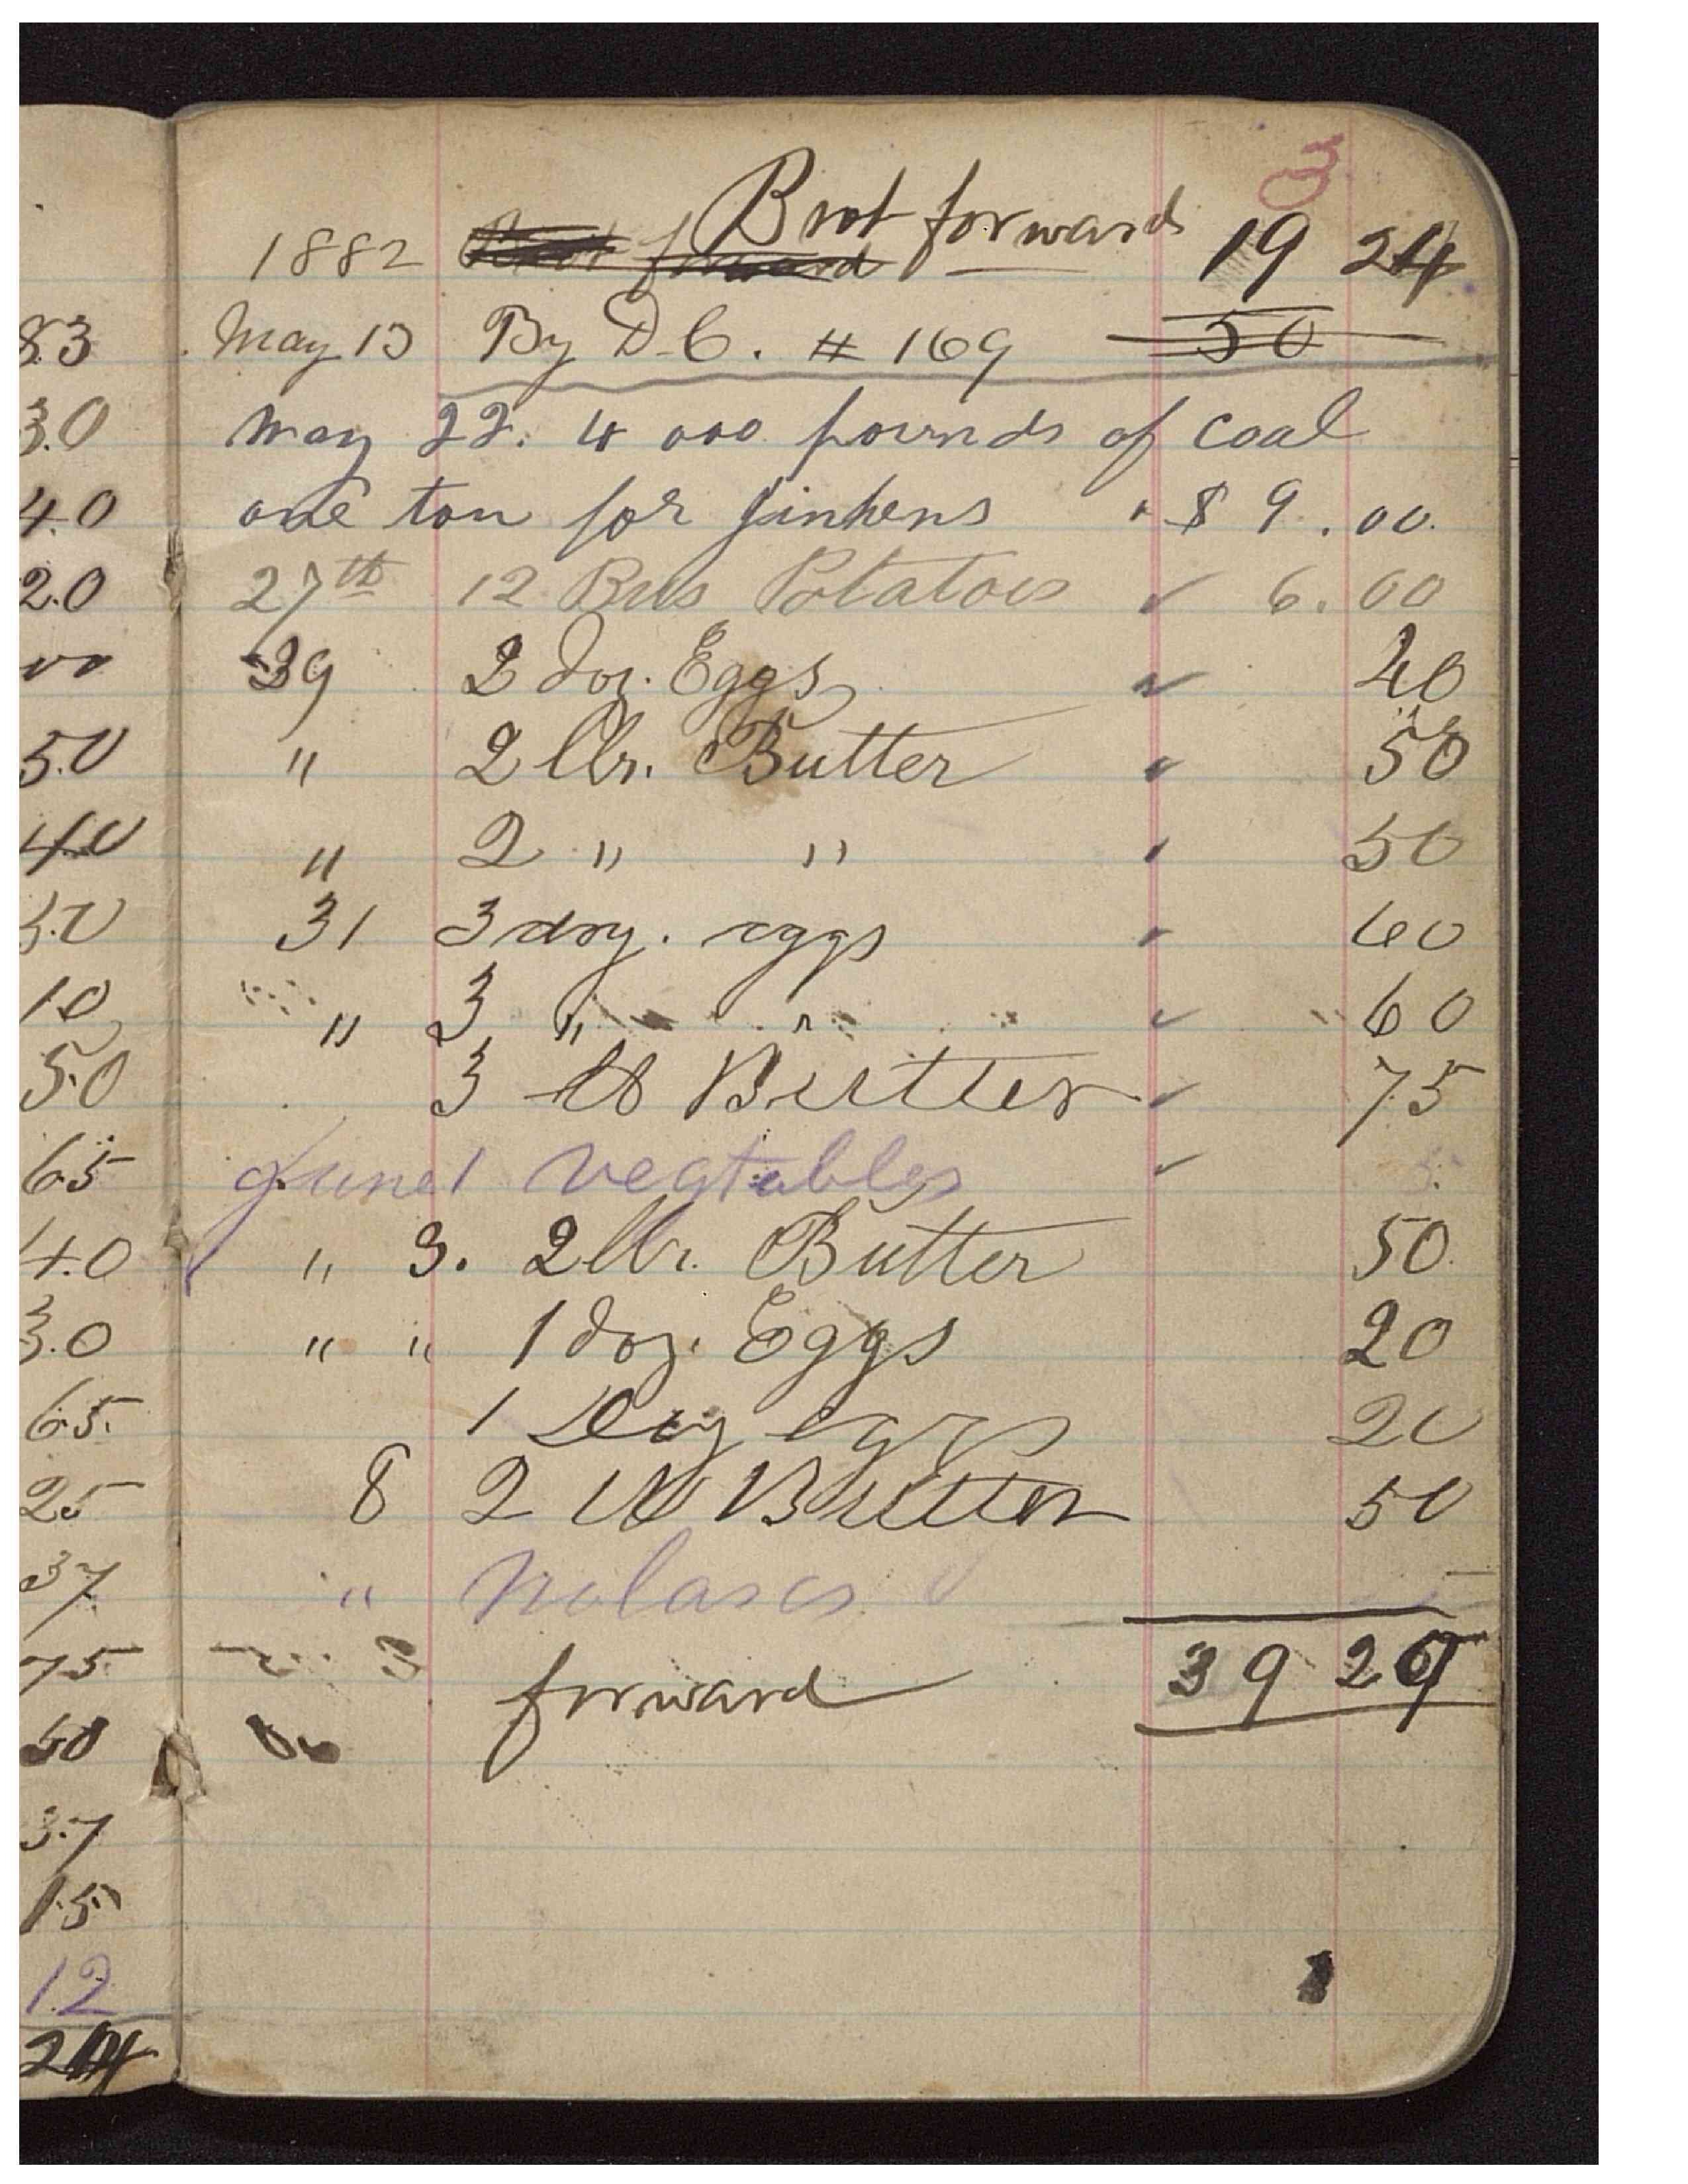 3
Brot forward
1882 Brot forward — 19 24
May 13 By D.C. # 169 50
May 22. 4 000 pounds of Coal
one ton for Jinkens $ 9.00.
27th 12 Bus Potatoes ✓ 6.00
29 2 doz. Eggs ✓ 40
" 2 lbs. Butter ✓ 50
" 2 " " ✓ 50
31 3 doz. eggs ✓ 60
" 3 " " ✓ 60
3 lb Butter ✓ 75
June 1 Vegtables ✓
" 3. 2 lbs. Butter 50.
" " 1 doz. Eggs 20
1 Doz eggs 20
8 2 lb Butter 50
" Molases ✓
forward 39 29
83
30
40
20
00
50
40
30
10
50
65
40
30
65
25
37
75
50
37
15
12
24